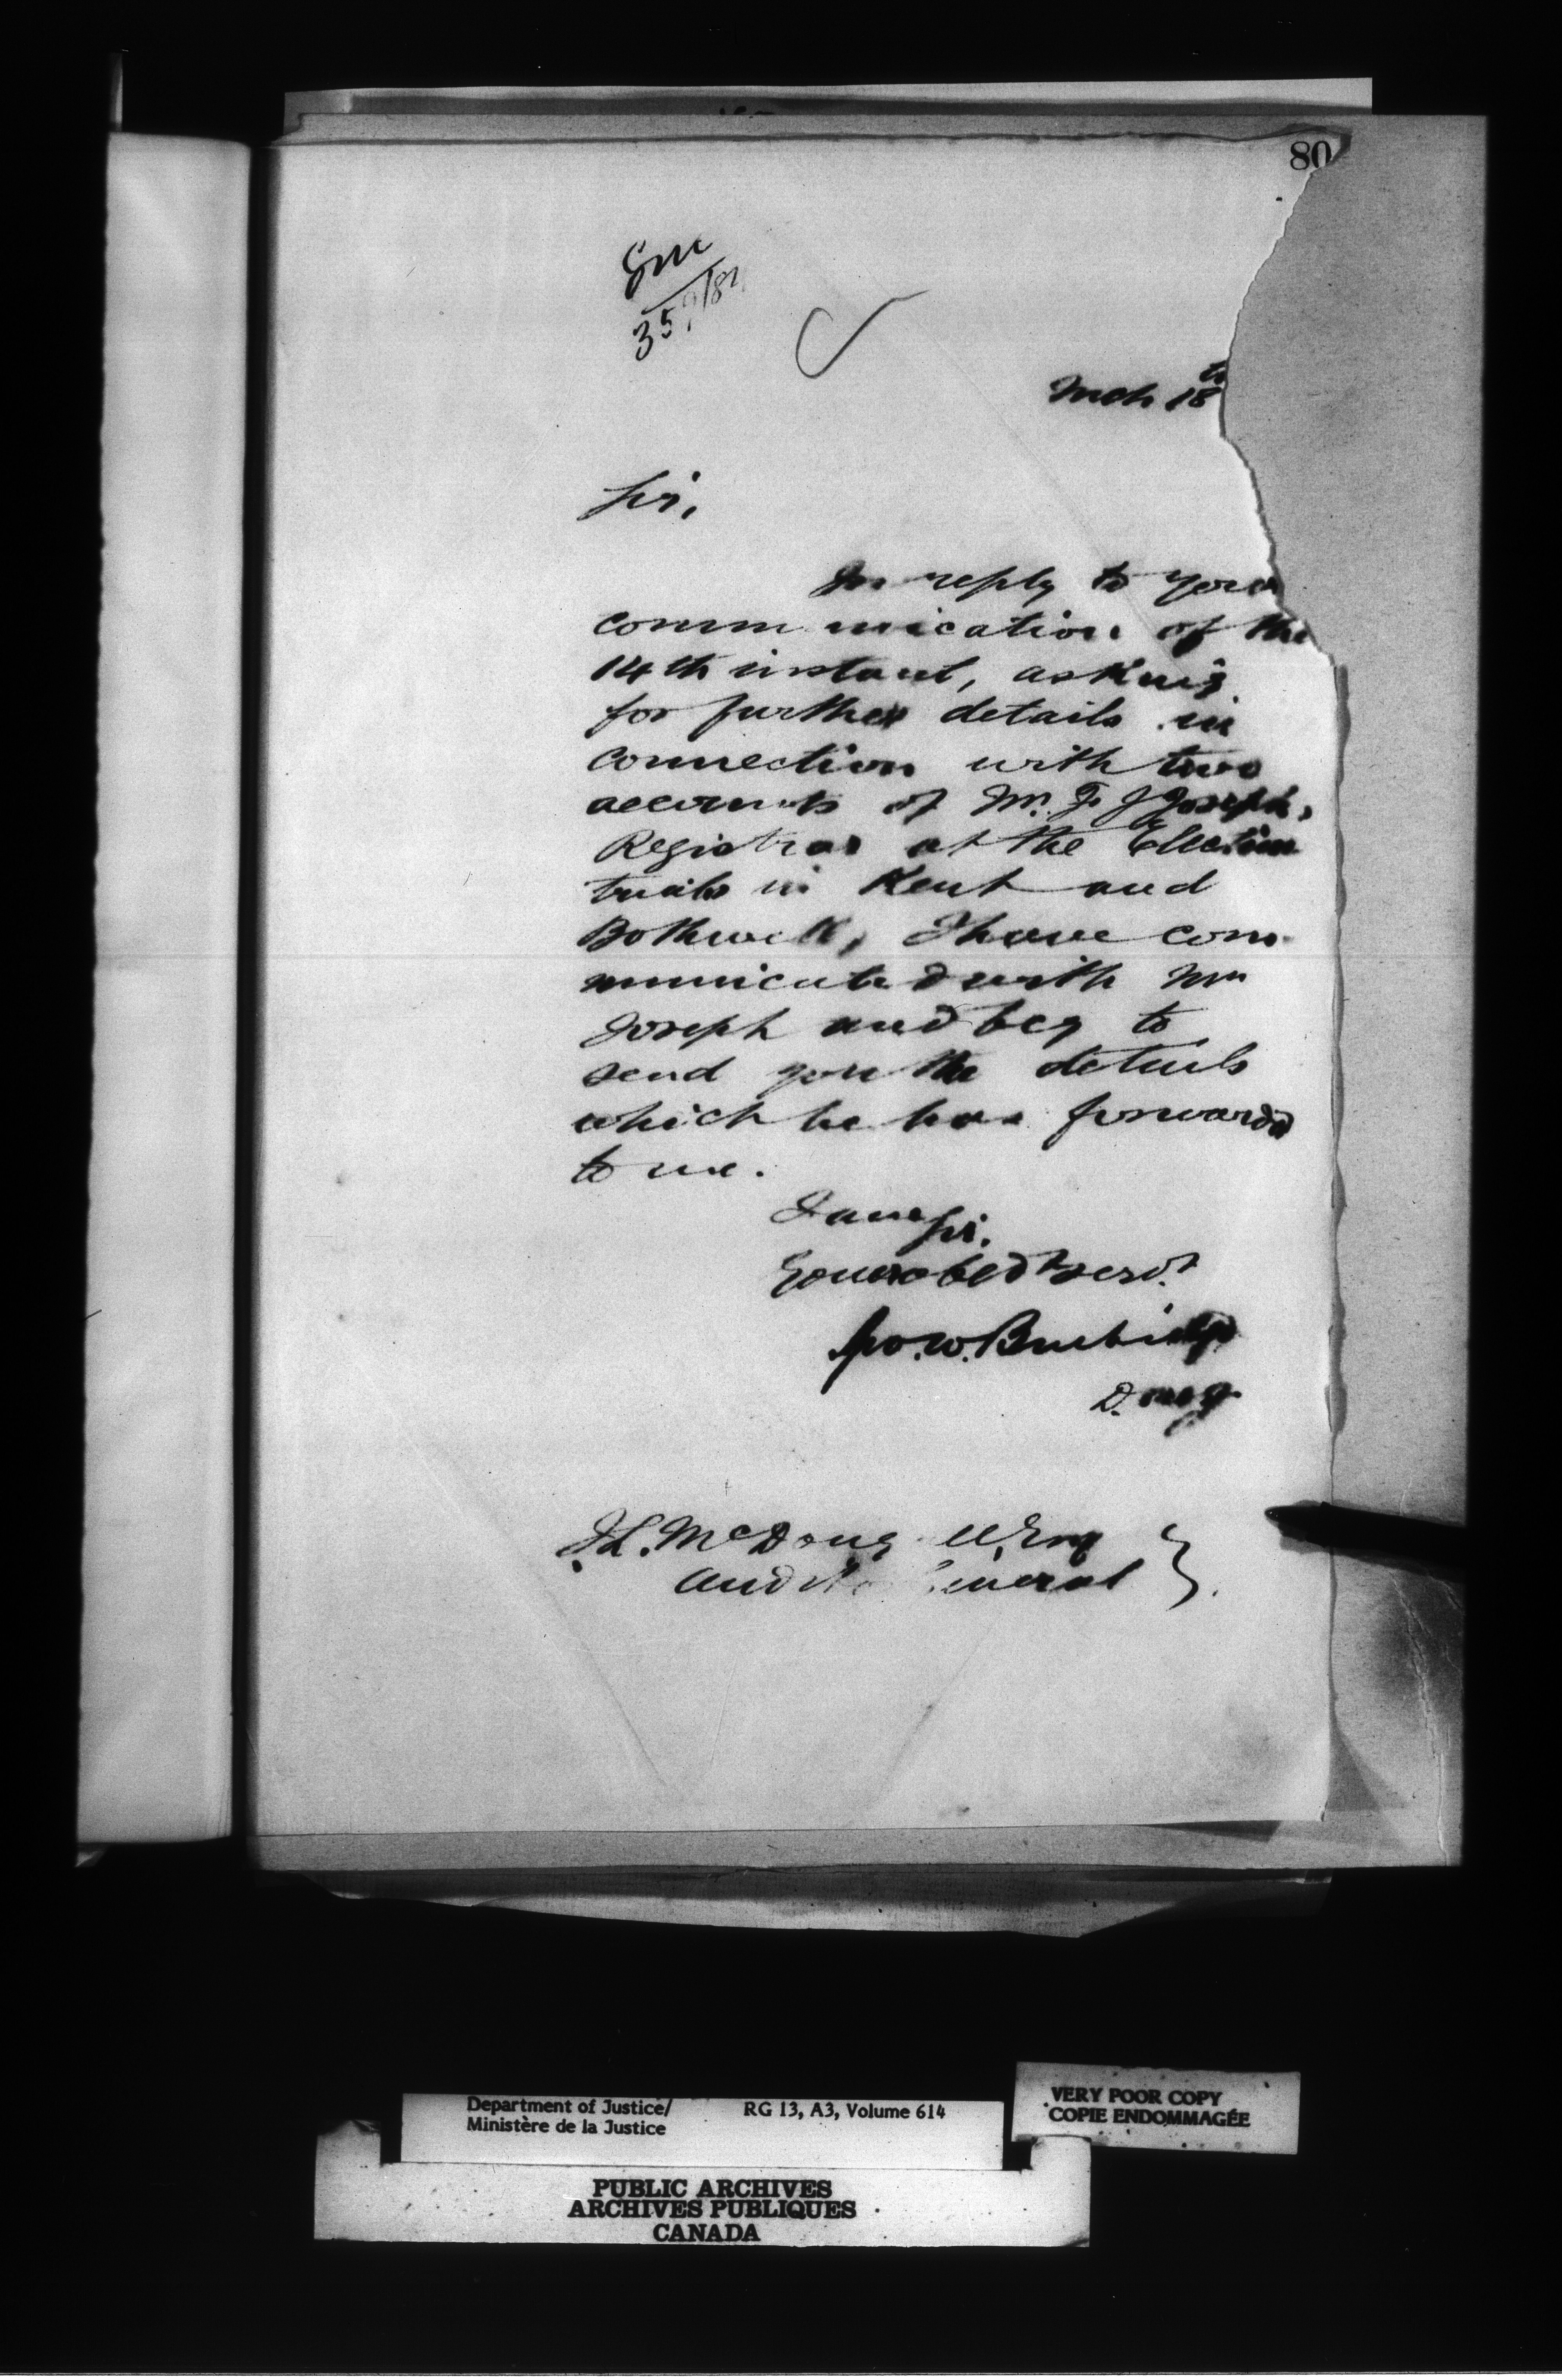 80
Mch 18th
Sir,
In reply to your
communication of the
14th instant, asking
for further details in
connection with two
accounts of Mr. F. J Joseph,
Registrar at the Election
trials in Kent and
Bothwell, I have com-
municated with Mr
Joseph and beg to
send you the details
which he has forwarded
to me.
I am Sir,
Your obedt servt
Geo. W. Burbidge
D. M. J.
J. L. McDougall, Esq
Auditor General
Department of Justice/
Ministère de la Justice
RG 13, A3, Volume 614
VERY POOR COPY
COPIE ENDOMMAGÉE
PUBLIC ARCHIVES
ARCHIVES PUBLIQUES
CANADA